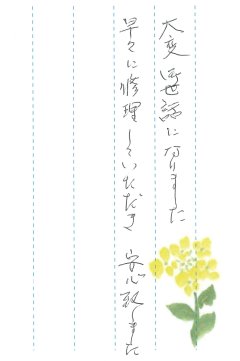 大変お世話になりました
早々に修理していただき 安心致しました